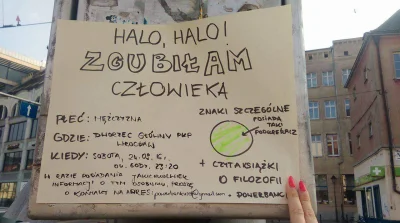 HALO, HALO!
ZGUBIŁAM
CZŁOWIEKA
PŁEĆ: MĘŻCZYZNA
GDZIE: DWORZEC GŁÓWNY PKP
WROCŁAW
KIEDY: SOBOTA, 24.09.16r.
OK. GODZ. 23:20
W RAZIE POSIADANIA JAKICHKOLWIEK
INFORMACJI O TYM OSOBNIKU, PROSZĘ
O KONTAKT NA ADRES: @gmail.com
ZNAKI SZCZEGÓLNE
POSIADA
TAKI
PODKOSZULEK
+ CZYTA KSIĄŻKI
O FILOZOFII
+ POWERBANK